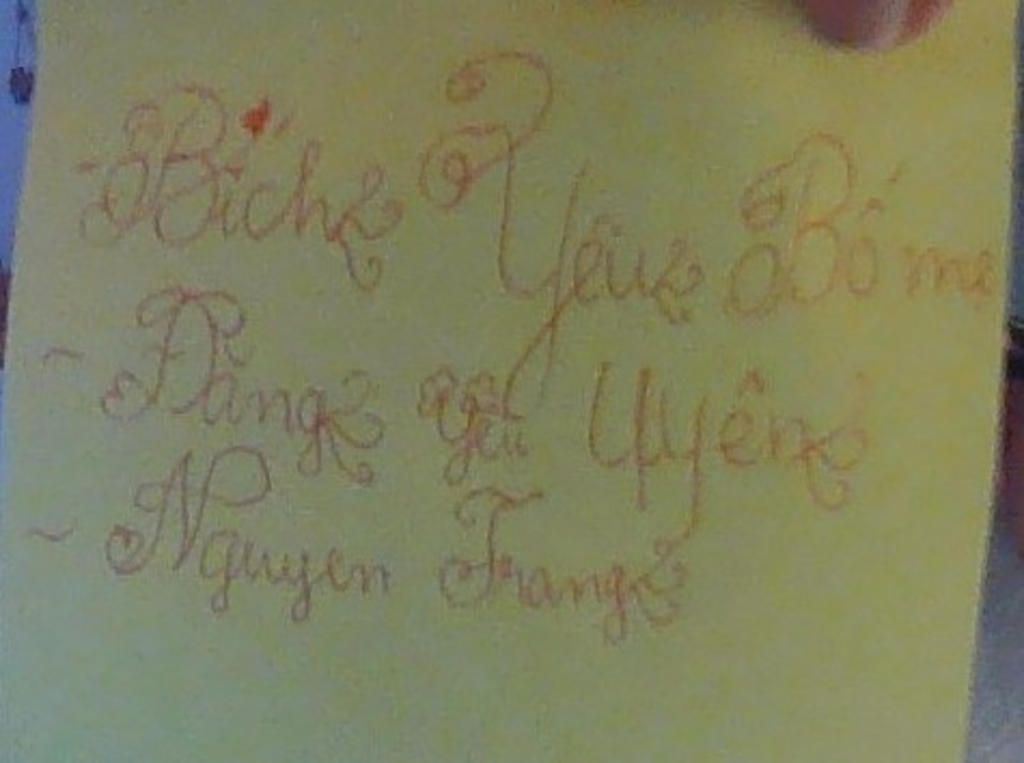 - Bích Yêu Bố mẹ
~ Đăng yêu Uyên
~ Nguyen Trang